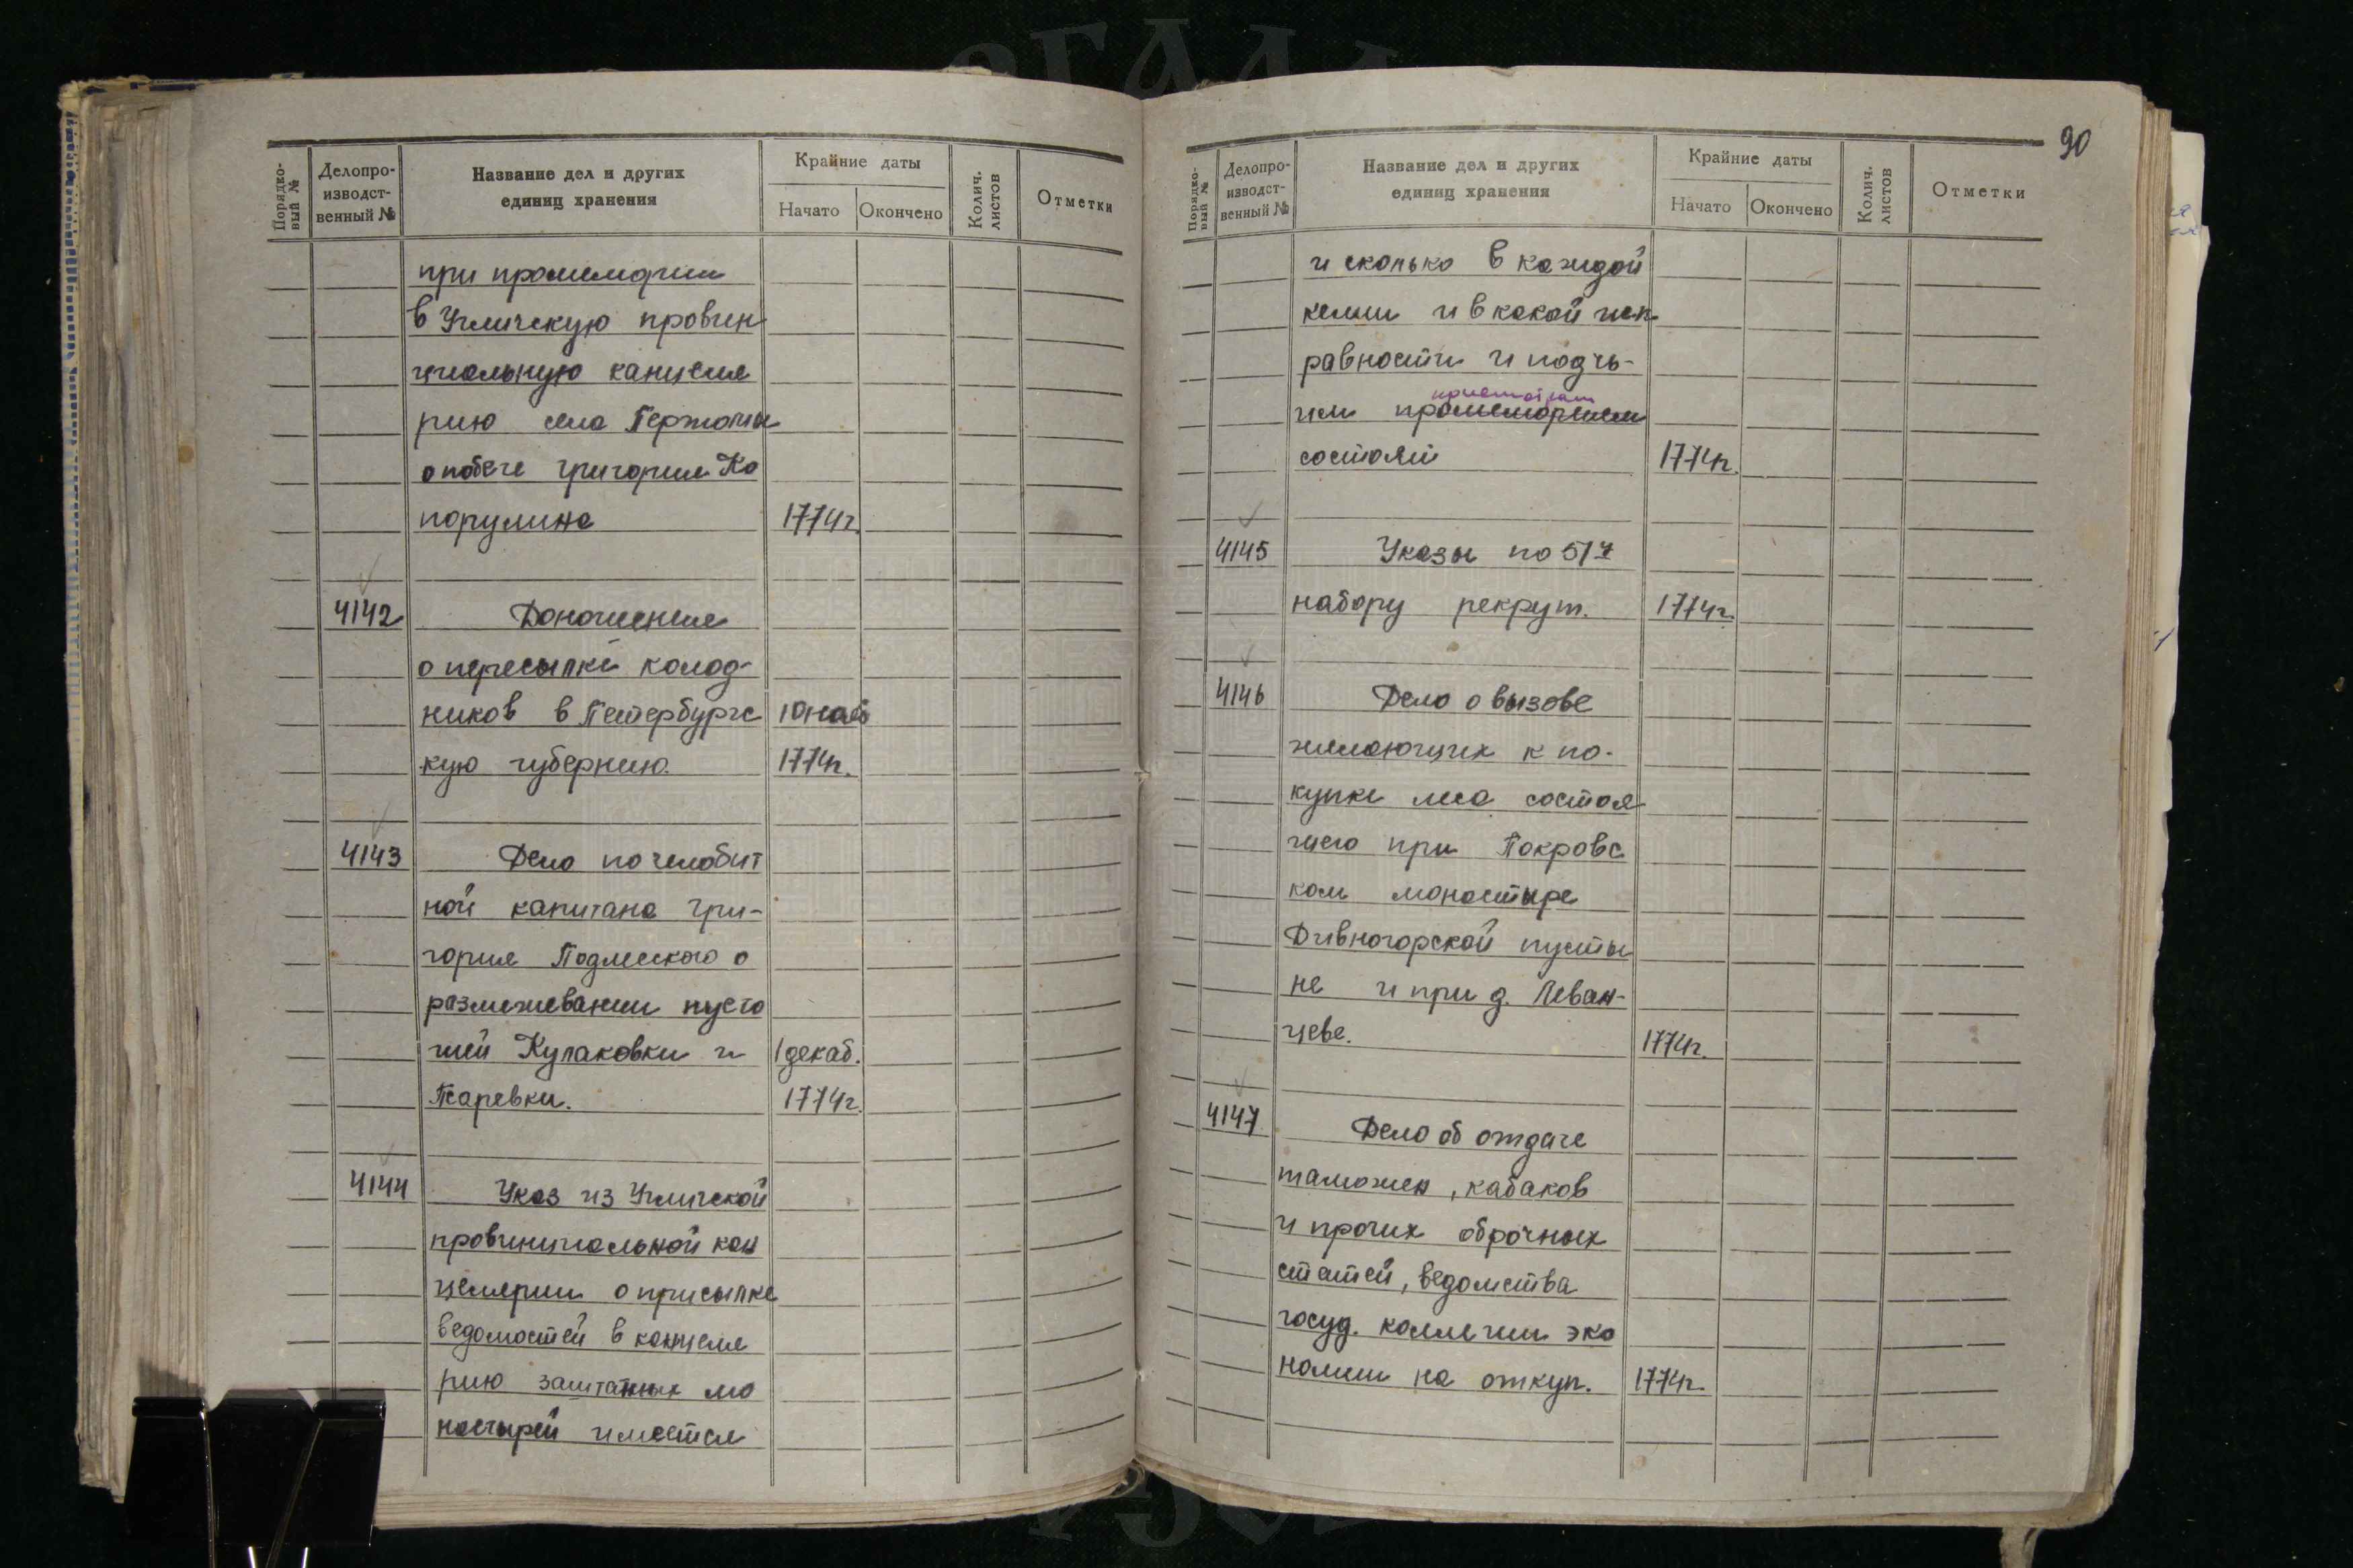 Порядко-
вый №
Делопро-
изводст-
венный №
Название дел и других
единиц хранения
Крайние даты
Начато
Окончено
Колич.
листов
Отметки
при промемории
в Угличскую провин
циальную канцеля
рию села
о побеге Григория Ко
порулина 1774г.
4142 Доношение
о пересылке колод-
ников в Петербургс 10 нояб
кую губернию. 1774г.
4143 Дело по челобит
ной капитана Гри-
гория Подлеского о
размежевании пусто
шей Кулаковки и 1 декаб.
1774г.
4144 Указ из Угличской
провинциальной кан
целярии о присылке
ведомостей в канцеля
рию заштатных мо
настырей имеется
90
Порядко-
вый №
Делопро-
изводст-
венный №
Название дел и других
единиц хранения
Крайние даты
Начато
Окончено
Колич.
листов
Отметки
и сколько в каждой
келии и в какой исп
равности и под чь-
присмотром
им промеморием
состоят 1774г.
4145 Указы по 57
набору рекрут. 1774г.
4146 Дело о вызове
желающих к по-
купке леса состоя
щего при Покровс
ком монастыре
Дивногорской пусты
не и при д. Леван-
цеве. 1774г.
4147 Дело об отдаче
таможен, кабаков
и прочих оброчных
статей, ведомства
госуд. коллегии эко
номии на откуп. 1774г.